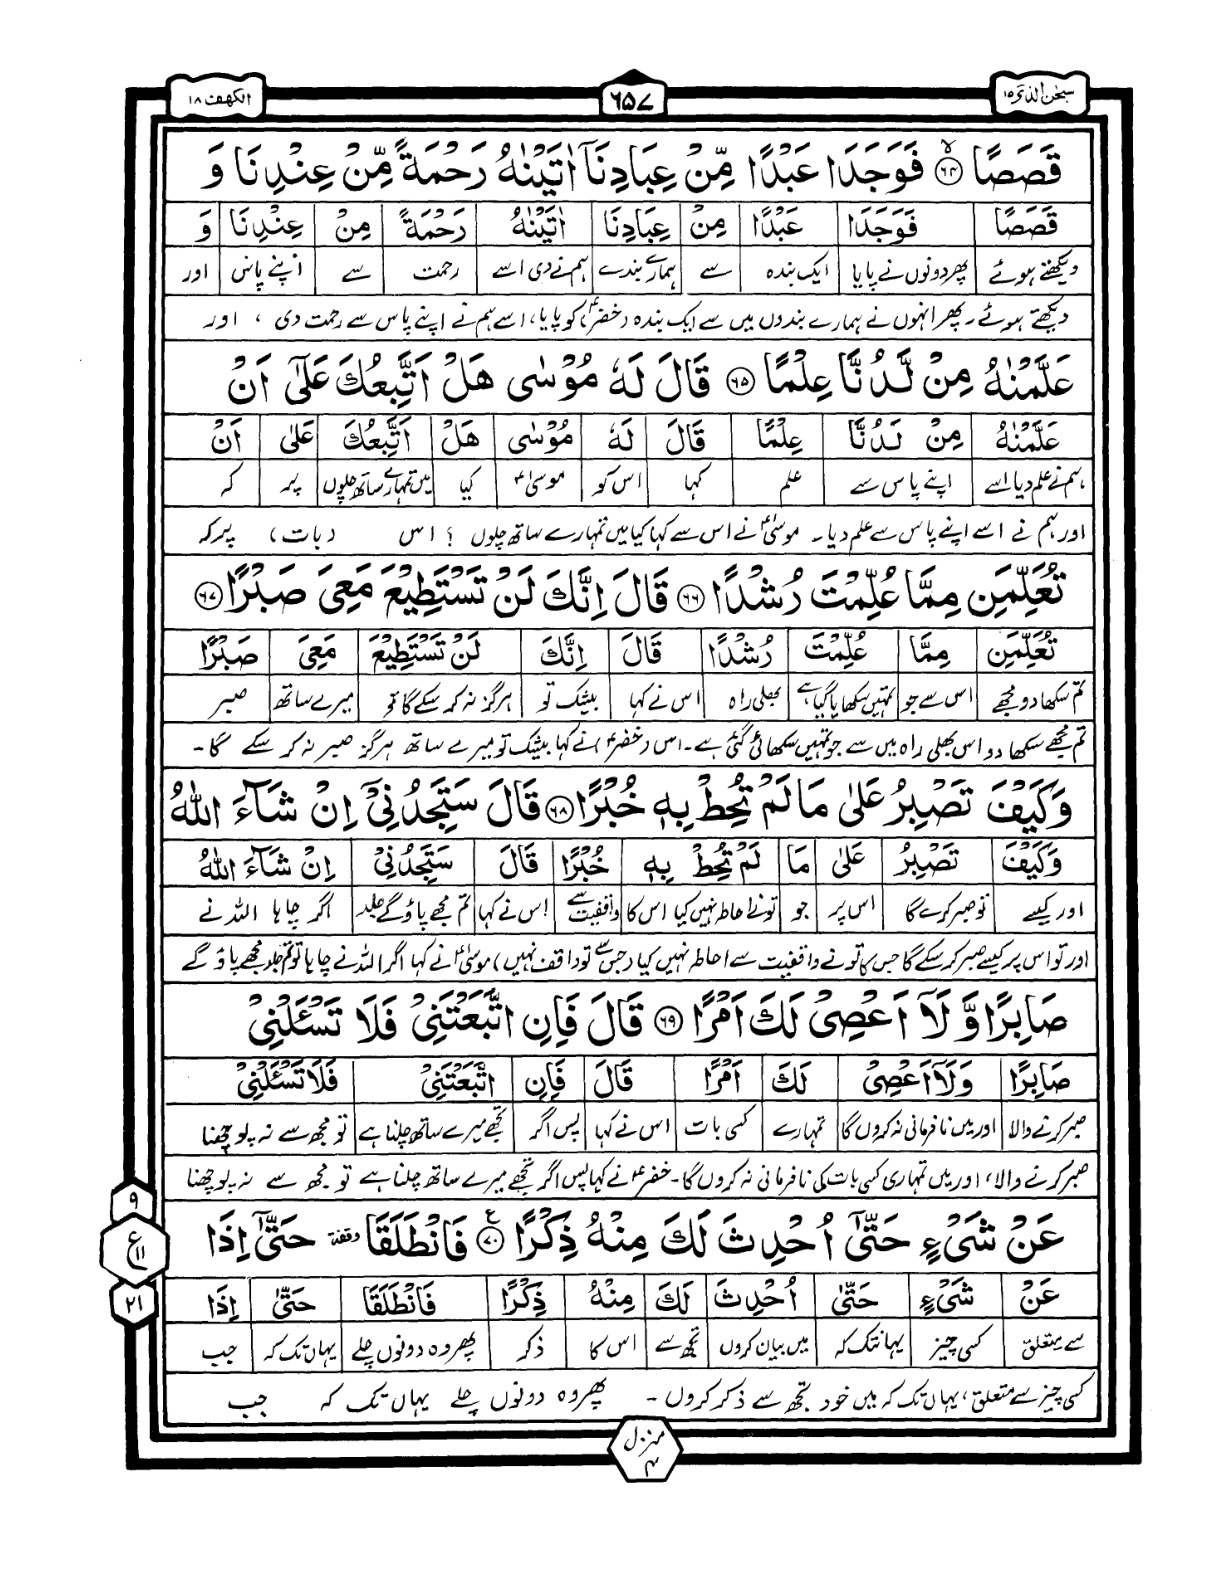 سبحٰن الذی ١٥
٦٥٧
الکھف ١٨
قَصَصًا ﴿٦٤﴾ فَوَجَدَا عَبْدًا مِّنْ عِبَادِنَاۤ اٰتَیْنٰهُ رَحْمَةً مِّنْ عِنْدِنَا وَ
قَصَصًا فَوَجَدَا عَبْدًا مِنْ عِبَادِنَا اٰتَیْنٰهُ رَحْمَةً مِنْ عِنْدِنَا وَ
دیکھتے ہوئے پھر دونوں نے پایا ایک بندہ سے ہمارے بندے ہم نے دی اسے رحمت سے اپنے پاس اور
دیکھتے ہوئے۔ پھر انہوں نے ہمارے بندوں میں سے ایک بندہ (خضرؑ) کو پایا، اسے ہم نے اپنے پاس سے رحمت دی ، اور
عَلَّمْنٰهُ مِنْ لَّدُنَّا عِلْمًا ﴿٦٥﴾ قَالَ لَهٗ مُوْسٰی هَلْ اَتَّبِعُكَ عَلٰۤی اَنْ
عَلَّمْنٰهُ مِنْ لَدُنَّا عِلْمًا قَالَ لَهٗ مُوْسٰی هَلْ اَتَّبِعُكَ عَلٰی اَنْ
ہم نے علم دیا اسے اپنے پاس سے علم کہا اس کو موسیٰؑ کیا میں تمہارے ساتھ چلوں پر کہ
اور ہم نے اسے اپنے پاس سے علم دیا۔ موسیٰؑ نے اس سے کہا کیا میں تمہارے ساتھ چلوں ؟ اس (بات) پر کہ
تُعَلِّمَنِ مِمَّا عُلِّمْتَ رُشْدًا ﴿٦٦﴾ قَالَ اِنَّكَ لَنْ تَسْتَطِیْعَ مَعِیَ صَبْرًا ﴿٦٧﴾
تُعَلِّمَنِ مِمَّا عُلِّمْتَ رُشْدًا قَالَ اِنَّكَ لَنْ تَسْتَطِیْعَ مَعِیَ صَبْرًا
تم سکھا دو مجھے اس سے جو تمہیں سکھایا گیا ہے بھلی راہ اس نے کہا بیشک تو ہرگز نہ کر سکے گا تو میرے ساتھ صبر
تم مجھے سکھا دو اس بھلی راہ میں سے جو تمہیں سکھائی گئی ہے۔ اس (خضرؑ) نے کہا بیشک تو میرے ساتھ ہرگز صبر نہ کر سکے گا۔
وَكَیْفَ تَصْبِرُ عَلٰی مَا لَمْ تُحِطْ بِهٖ خُبْرًا ﴿٦٨﴾ قَالَ سَتَجِدُنِیْۤ اِنْ شَآءَ اللّٰهُ
وَكَیْفَ تَصْبِرُ عَلٰی مَا لَمْ تُحِطْ بِهٖ خُبْرًا قَالَ سَتَجِدُنِیْ اِنْ شَآءَ اللّٰهُ
اور کیسے تو صبر کرے گا اس پر جو تو نے احاطہ نہیں کیا اس کا واقفیت سے اس نے کہا تم مجھے پاؤ گے جلد اگر چاہا اللہ نے
اور تو اس پر کیسے صبر کر سکے گا جس کا تو نے واقفیت سے احاطہ نہیں کیا (جس سے تو واقف نہیں) موسیٰؑ نے کہا اگر اللہ نے چاہا تو تم جلد مجھے پاؤ گے
صَابِرًا وَّ لَاۤ اَعْصِیْ لَكَ اَمْرًا ﴿٦٩﴾ قَالَ فَاِنِ اتَّبَعْتَنِیْ فَلَا تَسْـَٔلْنِیْ
صَابِرًا وَلَاۤ اَعْصِیْ لَكَ اَمْرًا قَالَ فَاِنِ اتَّبَعْتَنِیْ فَلَا تَسْـَٔلْنِیْ
صبر کرنے والا اور میں نافرمانی نہ کروں گا تمہارے کسی بات اس نے کہا پس اگر تجھے میرے ساتھ چلنا ہے تو مجھ سے نہ پوچھنا
صبر کرنے والا، اور میں تمہاری کسی بات کی نافرمانی نہ کروں گا۔ خضرؑ نے کہا پس اگر تجھے میرے ساتھ چلنا ہے تو مجھ سے نہ پوچھنا
عَنْ شَیْءٍ حَتّٰۤی اُحْدِثَ لَكَ مِنْهُ ذِكْرًا ﴿٧٠﴾ ع فَانْطَلَقَا وقفۃ حَتّٰۤی اِذَا
عَنْ شَیْءٍ حَتّٰی اُحْدِثَ لَكَ مِنْهُ ذِكْرًا فَانْطَلَقَا حَتّٰی اِذَا
سے متعلق کسی چیز یہانتک کہ میں بیان کروں تجھ سے اس کا ذکر پھر وہ دونوں چلے یہاں تک کہ جب
کسی چیز سے متعلق، یہاں تک کہ میں خود تجھ سے ذکر کروں۔ پھر وہ دونوں چلے یہاں تک کہ جب
٩
ع ١١
٢١
منزل ٤